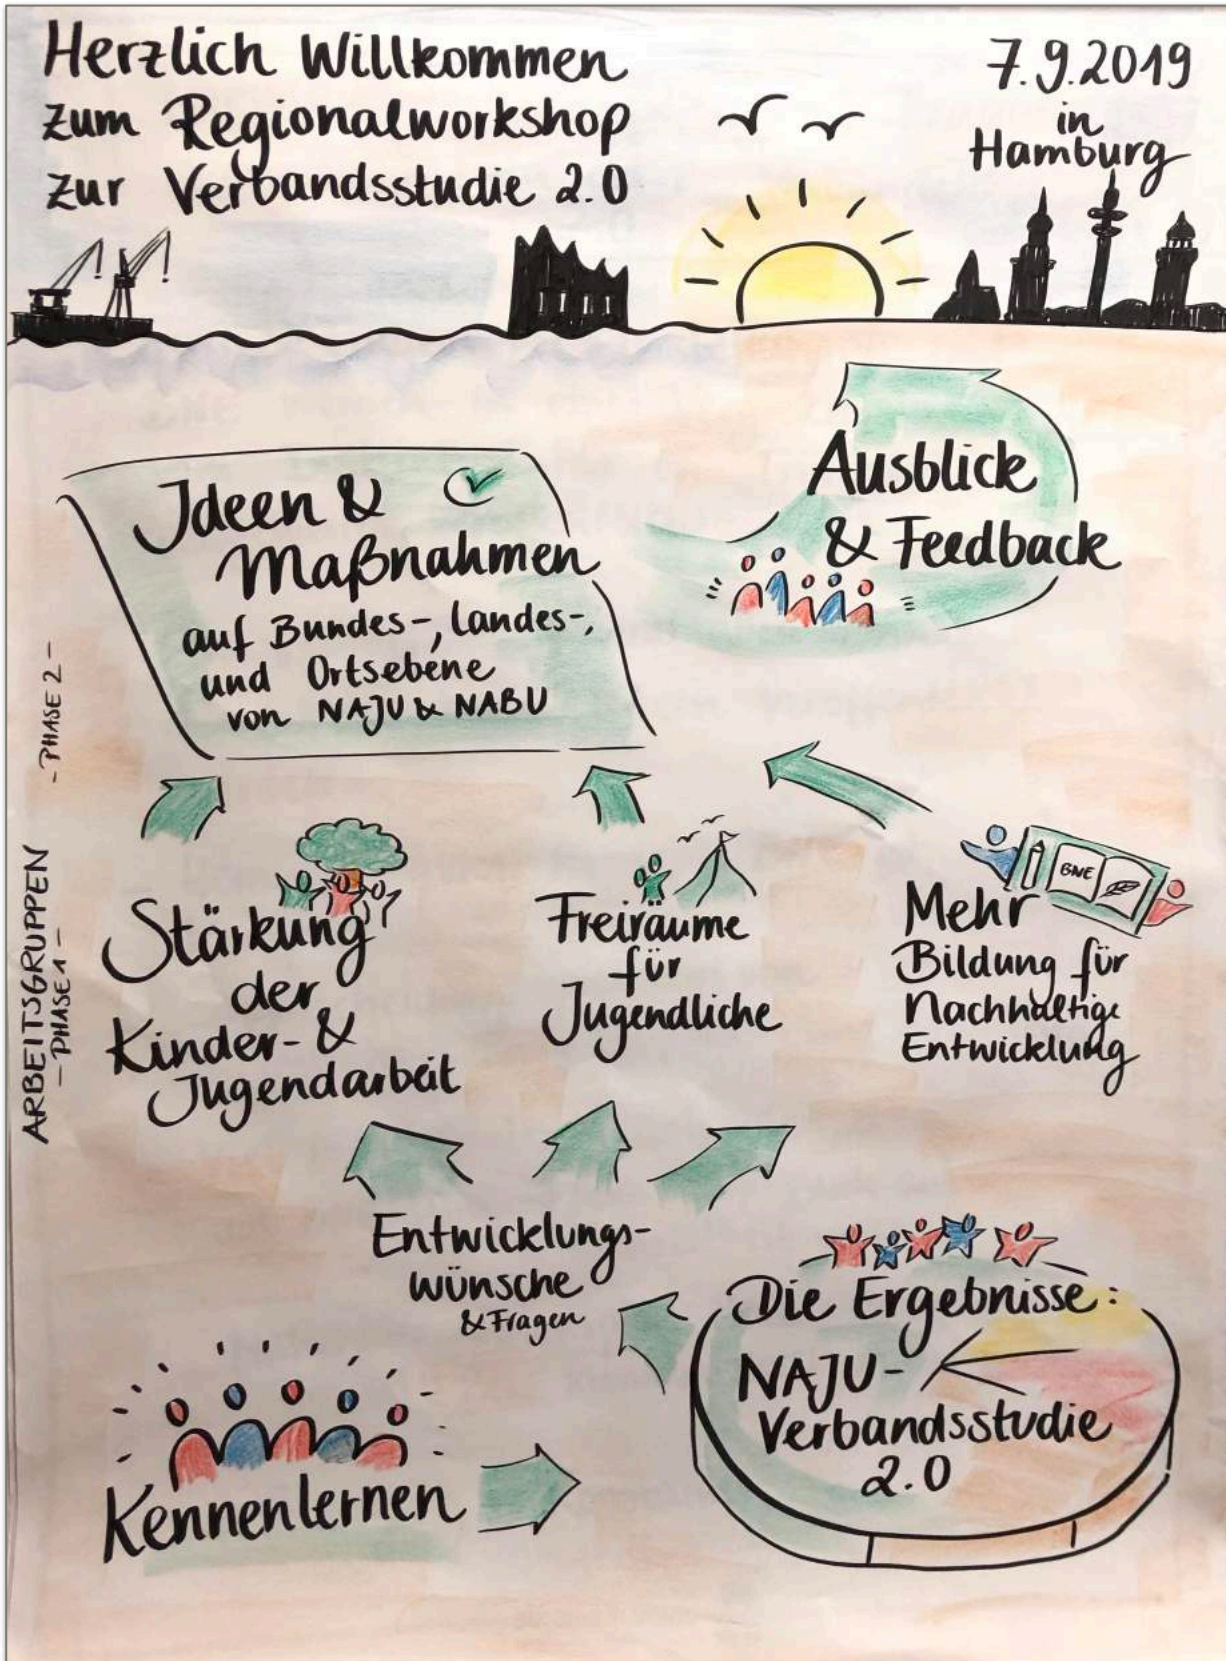 Herzlich Willkommen
zum Regionalworkshop
zur Verbandsstudie 2.0
7.9.2019
in
Hamburg
Ausblick
& Feedback
Ideen &
Maßnahmen
auf Bundes-, Landes-,
und Ortsebene
von NAJU & NABU
ARBEITSGRUPPEN
- PHASE 1 -
- PHASE 2 -
Stärkung
der
Kinder- &
Jugendarbeit
Freiräume
für
Jugendliche
BNE
Mehr
Bildung für
Nachhaltige
Entwicklung
Entwicklungs-
wünsche
& Fragen
Die Ergebnisse:
NAJU-
Verbandsstudie
2.0
Kennenlernen